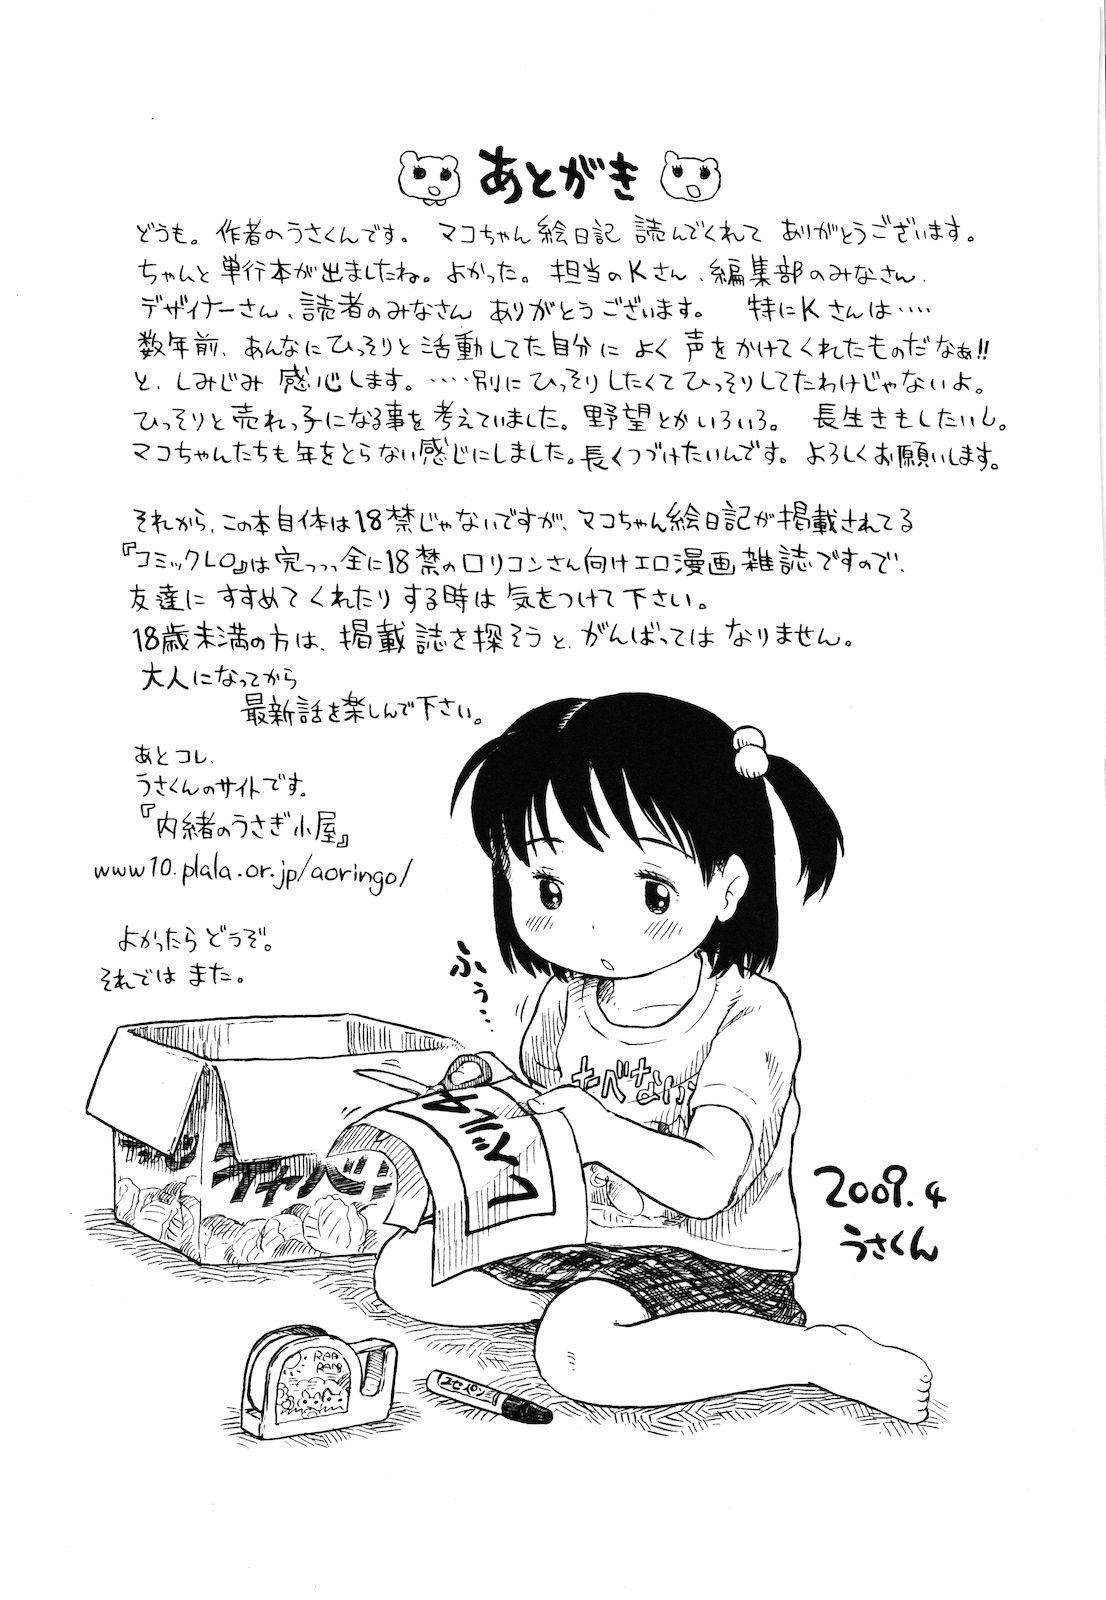 あとがき
どうも。作者のうさくんです。 マコちゃん絵日記 読んでくれて ありがとうございます。
ちゃんと単行本が出ましたね。よかった。担当のKさん、編集部のみなさん、
デザイナーさん、読者のみなさん ありがとうございます。 特にKさんは‥‥
数年前、あんなにひっそりと活動してた自分に よく声をかけてくれたものだなぁ!!
と、しみじみ感心します。‥‥別にひっそりしたくてひっそりしてたわけじゃないよ。
ひっそりと売れっ子になる事を考えていました。野望とかいろいろ。 長生きもしたいし。
マコちゃんたちも年をとらない感じにしました。長くつづけたいんです。よろしくお願いします。
それから、この本自体は18禁じゃないですが、マコちゃん絵日記が掲載されてる
『コミックLO』は完っっ全に18禁のロリコンさん向けエロ漫画雑誌ですので、
友達に すすめてくれたりする時は 気をつけて下さい。
18歳未満の方は、掲載誌を探そうと、がんばってはなりません。
大人になってから
最新話を楽しんで下さい。
あとコレ、
うさくんのサイトです。
『内緒のうさぎ小屋』
www10.plala.or.jp/aoringo/
よかったらどうぞ。
それでは また。
ふぅ…
2009.4
うさくん